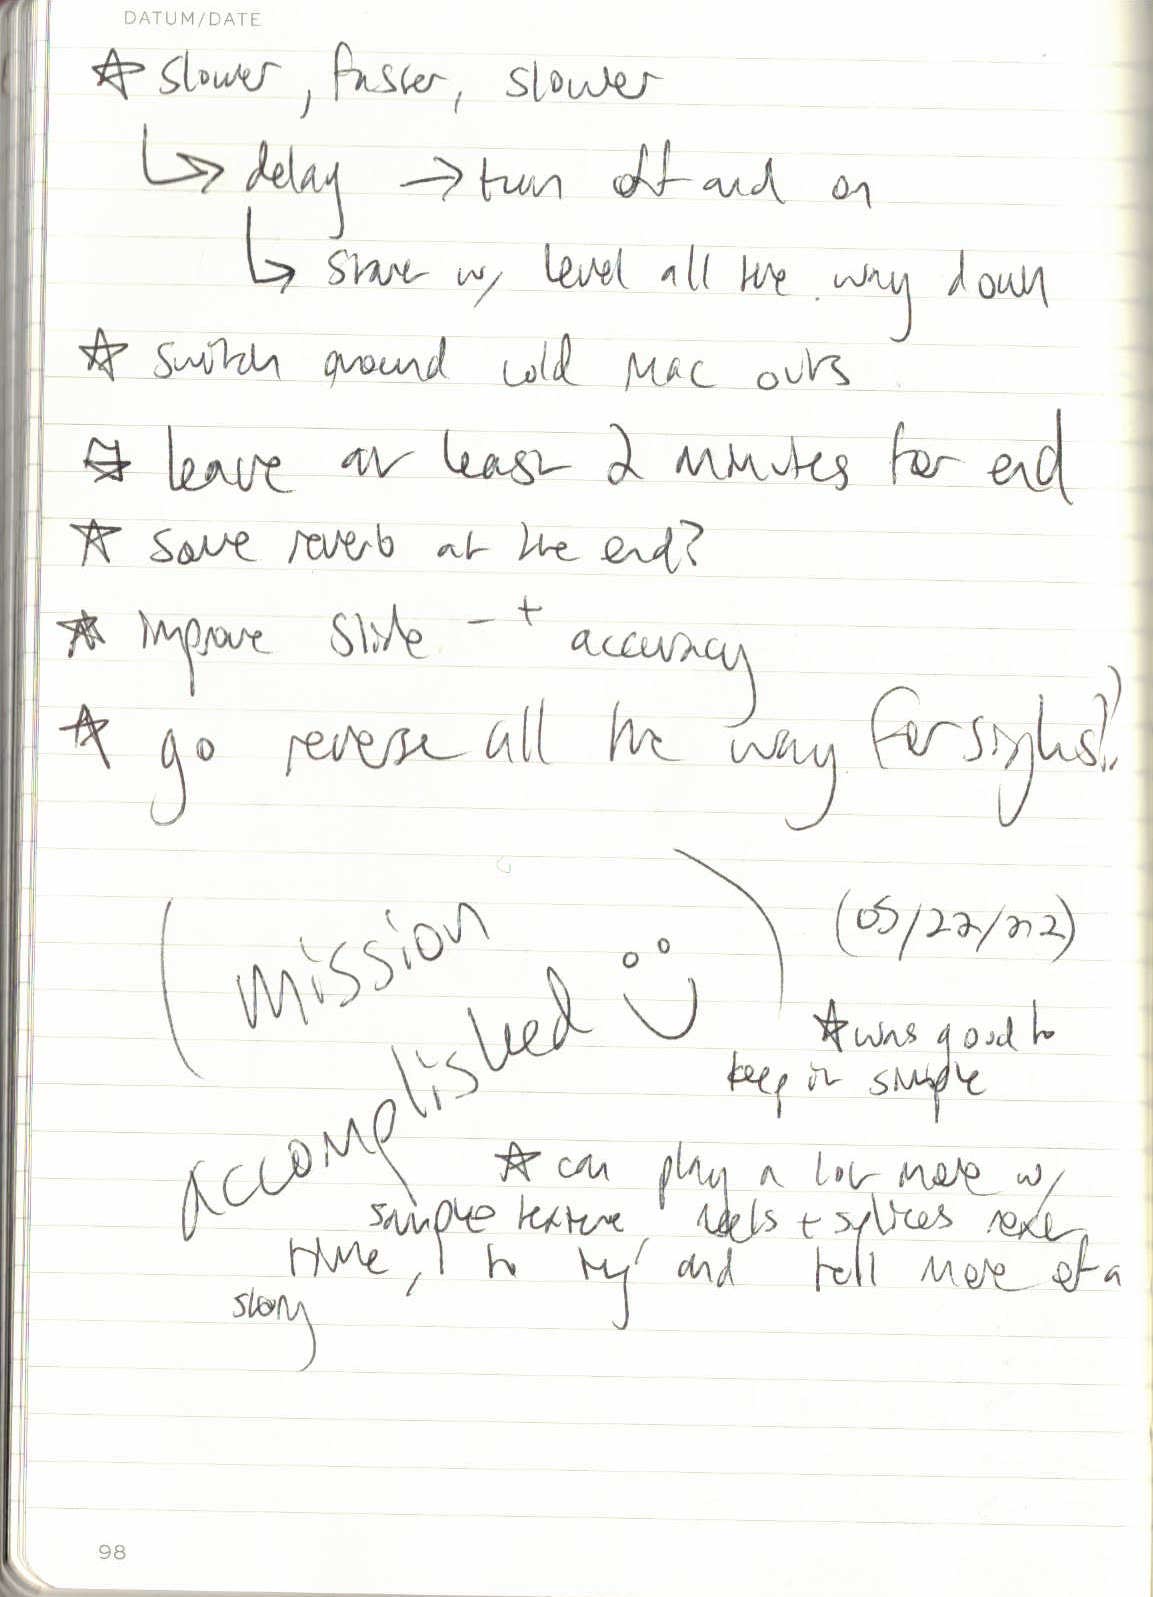 DATUM/DATE
☆ slower, faster, slower
↳ delay → turn off and on
↳ start w/ level all the way down
☆ switch around cold mac outs
☆ leave at least 2 minutes for end
☆ save reverb at the end?
☆ improve slide - + accuracy
☆ go reverse all the way for sighs!?
(mission
accomplished ☺)
(05/22/22)
☆ was good to
keep it simple
☆ can play a lot more w/
sample texture, reels + splices next
time, to try and tell more of a
story
98